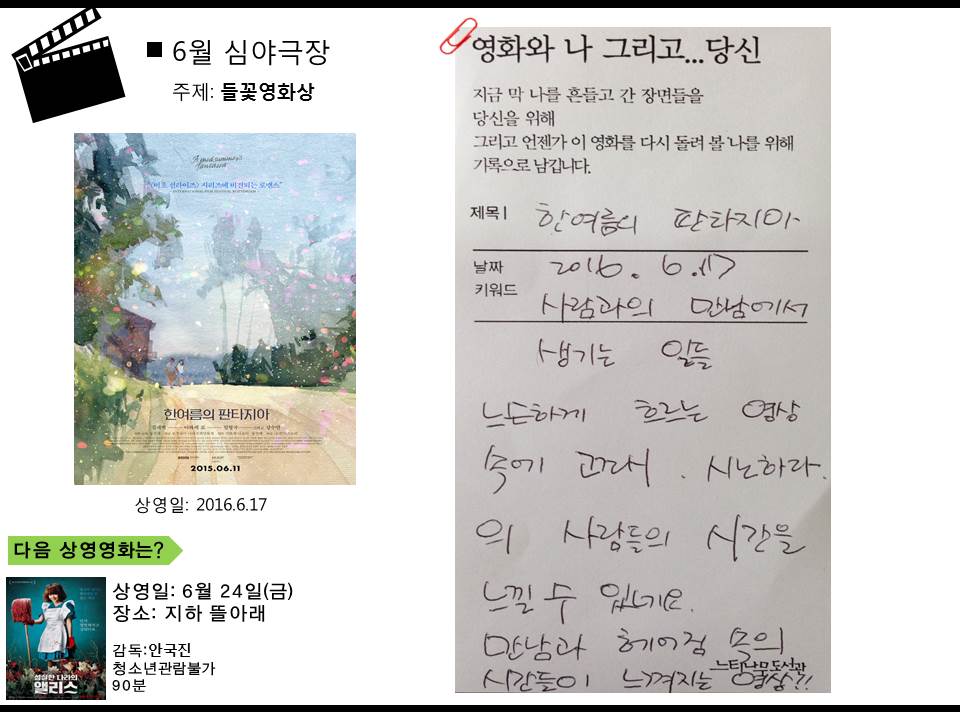 6월 심야극장
주제: 들꽃영화상
A midsummer's fantasia
한여름의 판타지아
2015.06.11
상영일: 2016.6.17
다음 상영영화는?
상영일: 6월 24일(금)
장소: 지하 뜰아래
감독:안국진
청소년관람불가
90분
성실한 나라의
앨리스
영화와 나 그리고...당신
지금 막 나를 흔들고 간 장면들을
당신을 위해
그리고 언젠가 이 영화를 다시 돌려 볼 나를 위해
기록으로 남깁니다.
제목 | 한여름의 판타지아
날짜 2016. 6. 17
키워드 사람과의 만남에서
생기는 일들
느슨하게 흐르는 영상
속에 고다시, 시노하라.
의 사람들의 시간을
느낄 수 있네요.
만남과 헤어짐 속의
느티나무도서관
시간들이 느껴지는 영상?!!